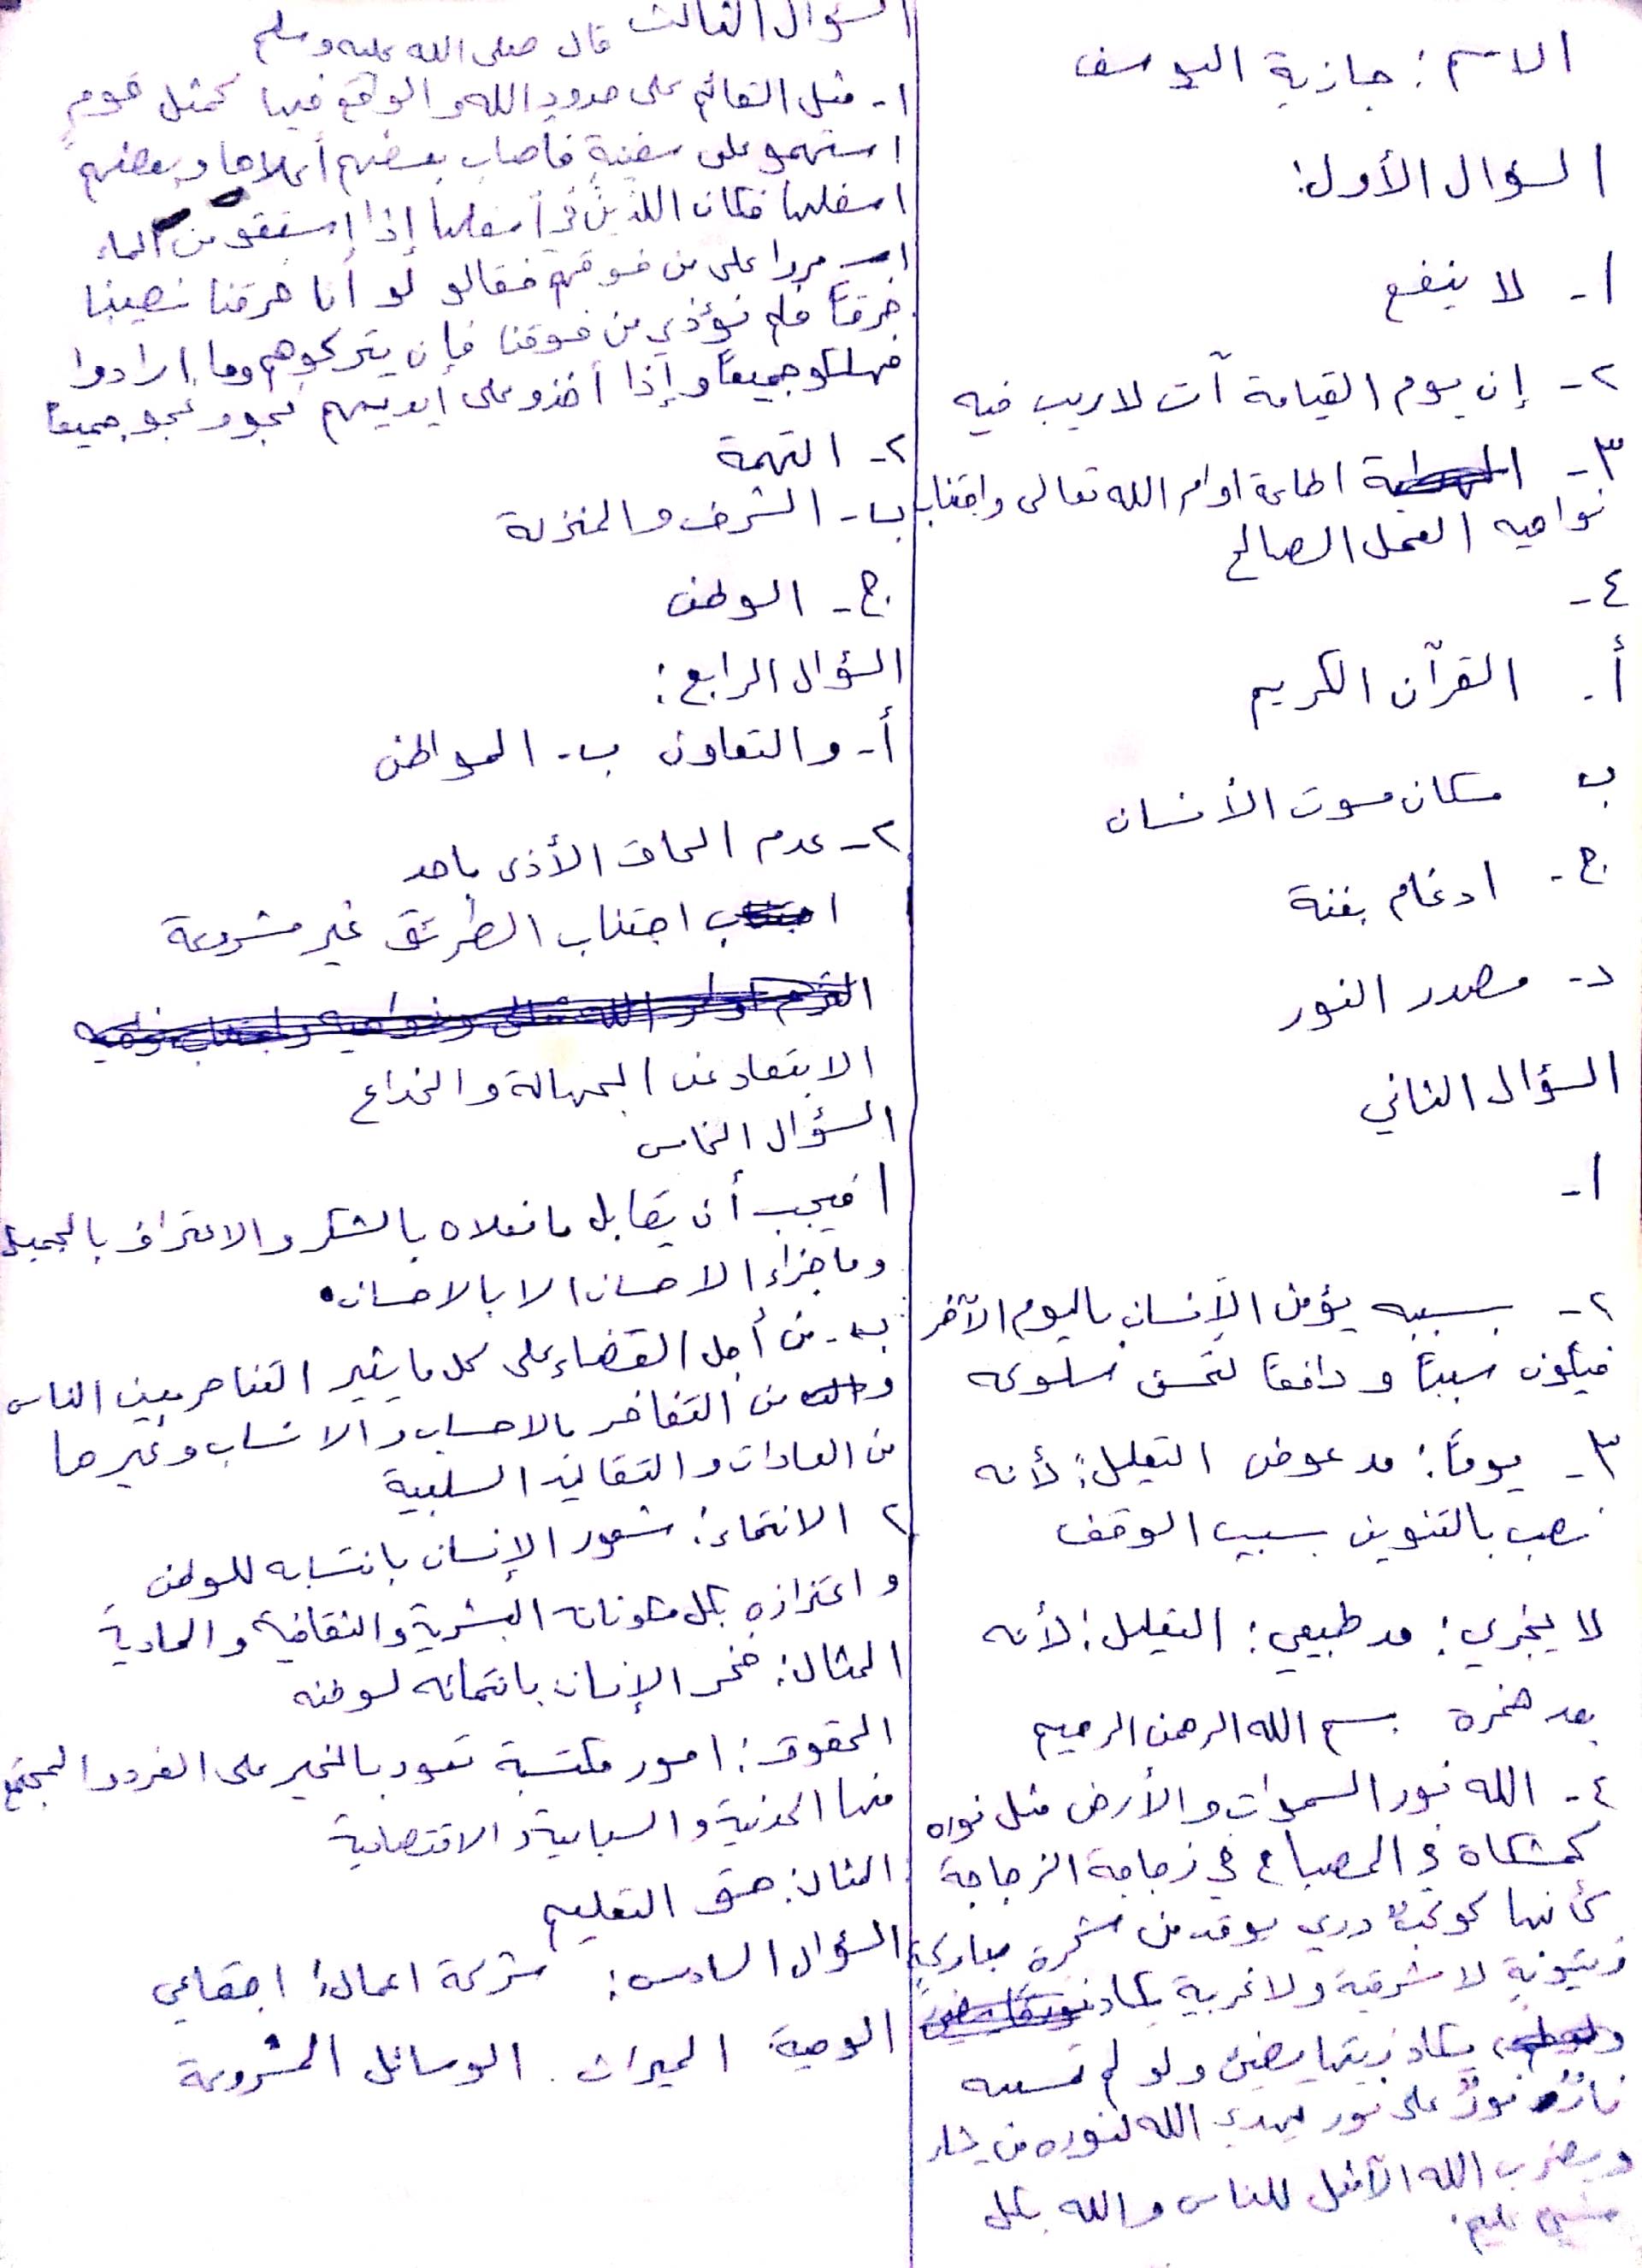 الاسم: جازية اليوسف
السؤال الأول:
١- لا ينفع
٢- إن يوم القيامة آت لا ريب فيه
٣- اطاعة اوامر الله تعالى واجتناب
نواهيه العمل الصالح
٤-
أ. القرآن الكريم
ب مكان موت الأنسان
ج- ادغام بغنة
د- مصدر النور
السؤال الثاني
١-
٢- بسببه يؤمن الإنسان باليوم الآخر
فيكون سبباً ودافعاً لتحسن سلوكه
٣- يوماً: مد عوض التعليل: لأنه
نصب بالتنوين بسبب الوقف
لا يجزي: مد طبيعي: التعليل: لأنه
بعد همزة بسم الله الرحمن الرحيم
٤- الله نور السموات والأرض مثل نوره
كمشكاة في المصباح في زجاجة الزجاجة
كأنها كوكبٌ دري يوقد من شجرة مباركةٍ
زيتونةٍ لا شرقية ولا غربية يكاد
يكاد زيتها يضيئ ولو لم تمسسه
نارٌ نورٌ على نور يهدي الله لنوره من يشاء
ويضرب الله الأمثل للناس والله بكل
شيئ عليم.
السؤال الثالث قال صلى الله عليه وسلم
١- مثل القائم على حدود الله والوقع فيها كمثل قومٍ
استهمو على سفينةٍ فاصاب بعضهم أعلاها وبعضهم
اسفلها فكان اللذين في أسفلها إذا إستقو من الماء
مروا على من فوقهم فقالو لو أنا خرقنا نصيبنا
خرقاً فلم نؤذي من فوقنا فإن يتركوهم وما ارادوا
فهلكو جميعاً وإذا أخذو على أيديهم نجو ونجو جميعاً
٢- التهمة
ب- الشرف والمنزلة
ج- الوطن
السؤال الرابع:
أ- والتعاون ب- المواطن
٢- عدم الحاق الأذى باحد
اجتناب الطرق غير مشروعة
الابتعاد عن الجهالة والخداع
السؤال الخامس
أ فيجب أن يقابل ما فعلاه بالشكر والاعتراف بالجميل
وما جزاء الاحسان الا بالاحسان.
ب- من أجل القضاء على كل ما يثير التناحر بين الناس
من التفاخر بالاحساب والانساب وغيرها
من العادات والتقاليد السلبية
٢ الانتماء: شعور الإنسان بانتسابه للوطن
واعتزازه بكل مكوناته البشرية والثقافية والمادية
المثال: فخر الإنسان بانتمائه لوطنه
الحقوق: امور مكتسبة تعود بالخير على الفرد والمجتمع
منها المدنية والسياسية والاقتصادية
المثال: حق التعليم
السؤال السادس: شركة اعمال: اجتماعي
الوصية: الميراث. الوسائل المشروعة